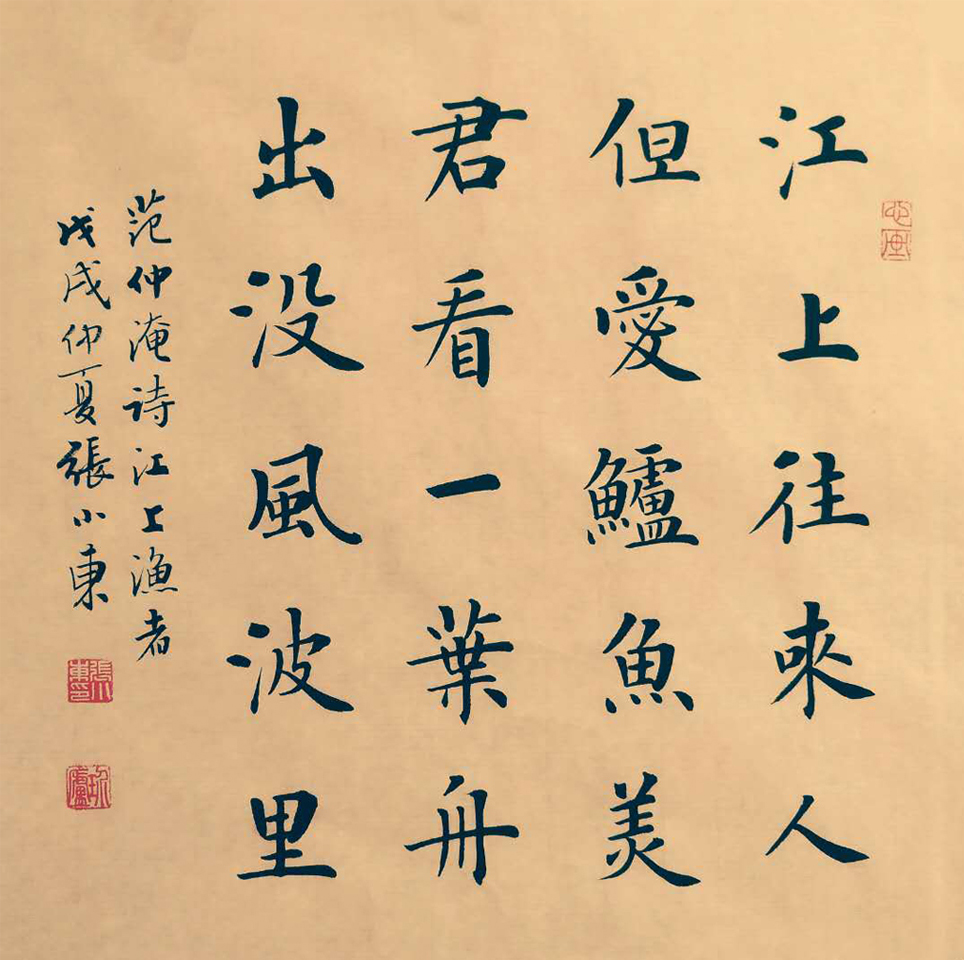 江上往來人
但愛鱸魚美
君看一葉舟
出没風波里
范仲淹诗江上漁者
戊戌仲夏張小東